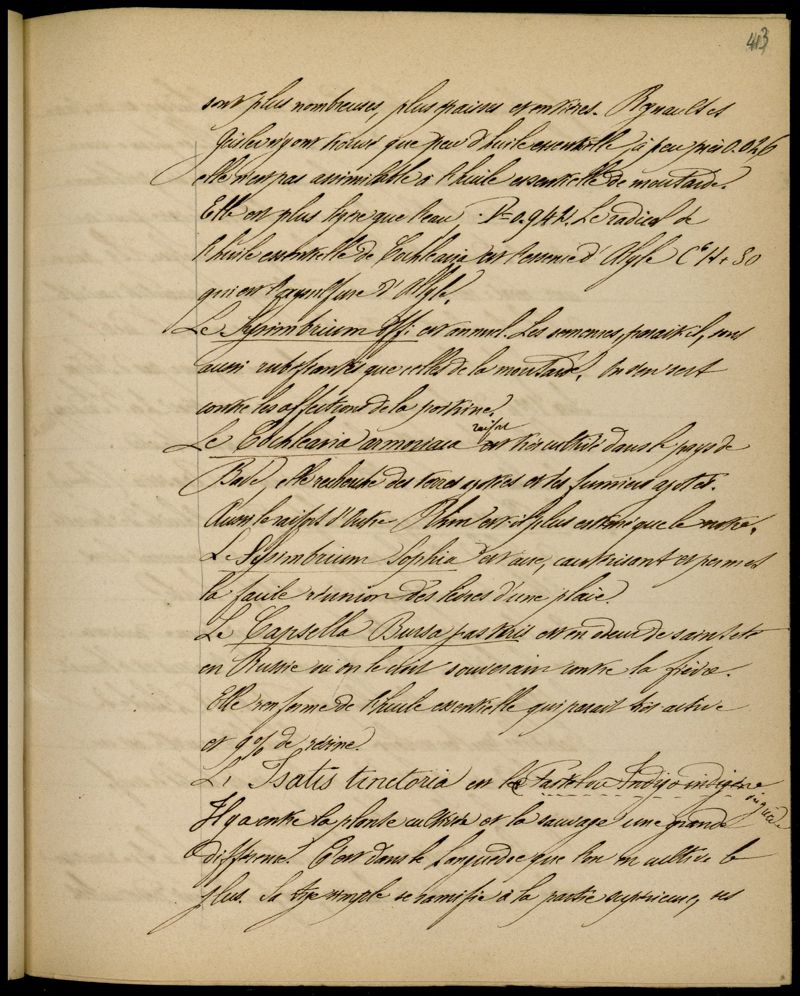 413
sont plus nombreuses, plus épaisses et entières. Regnault et
n'y ont trouvé que peu d'huile essentielle à peu près 0.026
elle n'est pas assimilable à l'huile essentielle de moutarde.
Elle est plus légère que l'eau, P= 0.942. Le radical de
l'huile essentielle de Cochlearia est l'essence d'Allyle
qui est le sulfure d'Allyle.
Le Sysimbrium offi: est annuel. Les semences, parait il, sont
aussi que celles de la moutarde. On s'en sert
contre les affections de la poitrine.
Le Cochlearia armoriaca raifort est très cultivé dans le pays de
Bade, elle recherche des terres et les fumiers
Aussi le raifort d'Outre Rhin est il plus estimé que le notre.
Le Sysimbrium Sophia est cautérisant et permet
la facile réunion des lèvres d'une plaie.
Le Capsella Bursa pastoris est en odeur de sainteté
en Russie où on le dit souverain contre la fièvre.
Elle renferme de l'huile essentielle qui parait très active
et 9% de résine.
L'Isatis tinctoria est le Pastel ou Indigo indigène
Il y a entre la plante cultivée et la sauvage une grande
différence. C'est dans le Languedoc que l'on en cultive le
plus. Sa tige simple se ramifie à la partie supérieure, ses